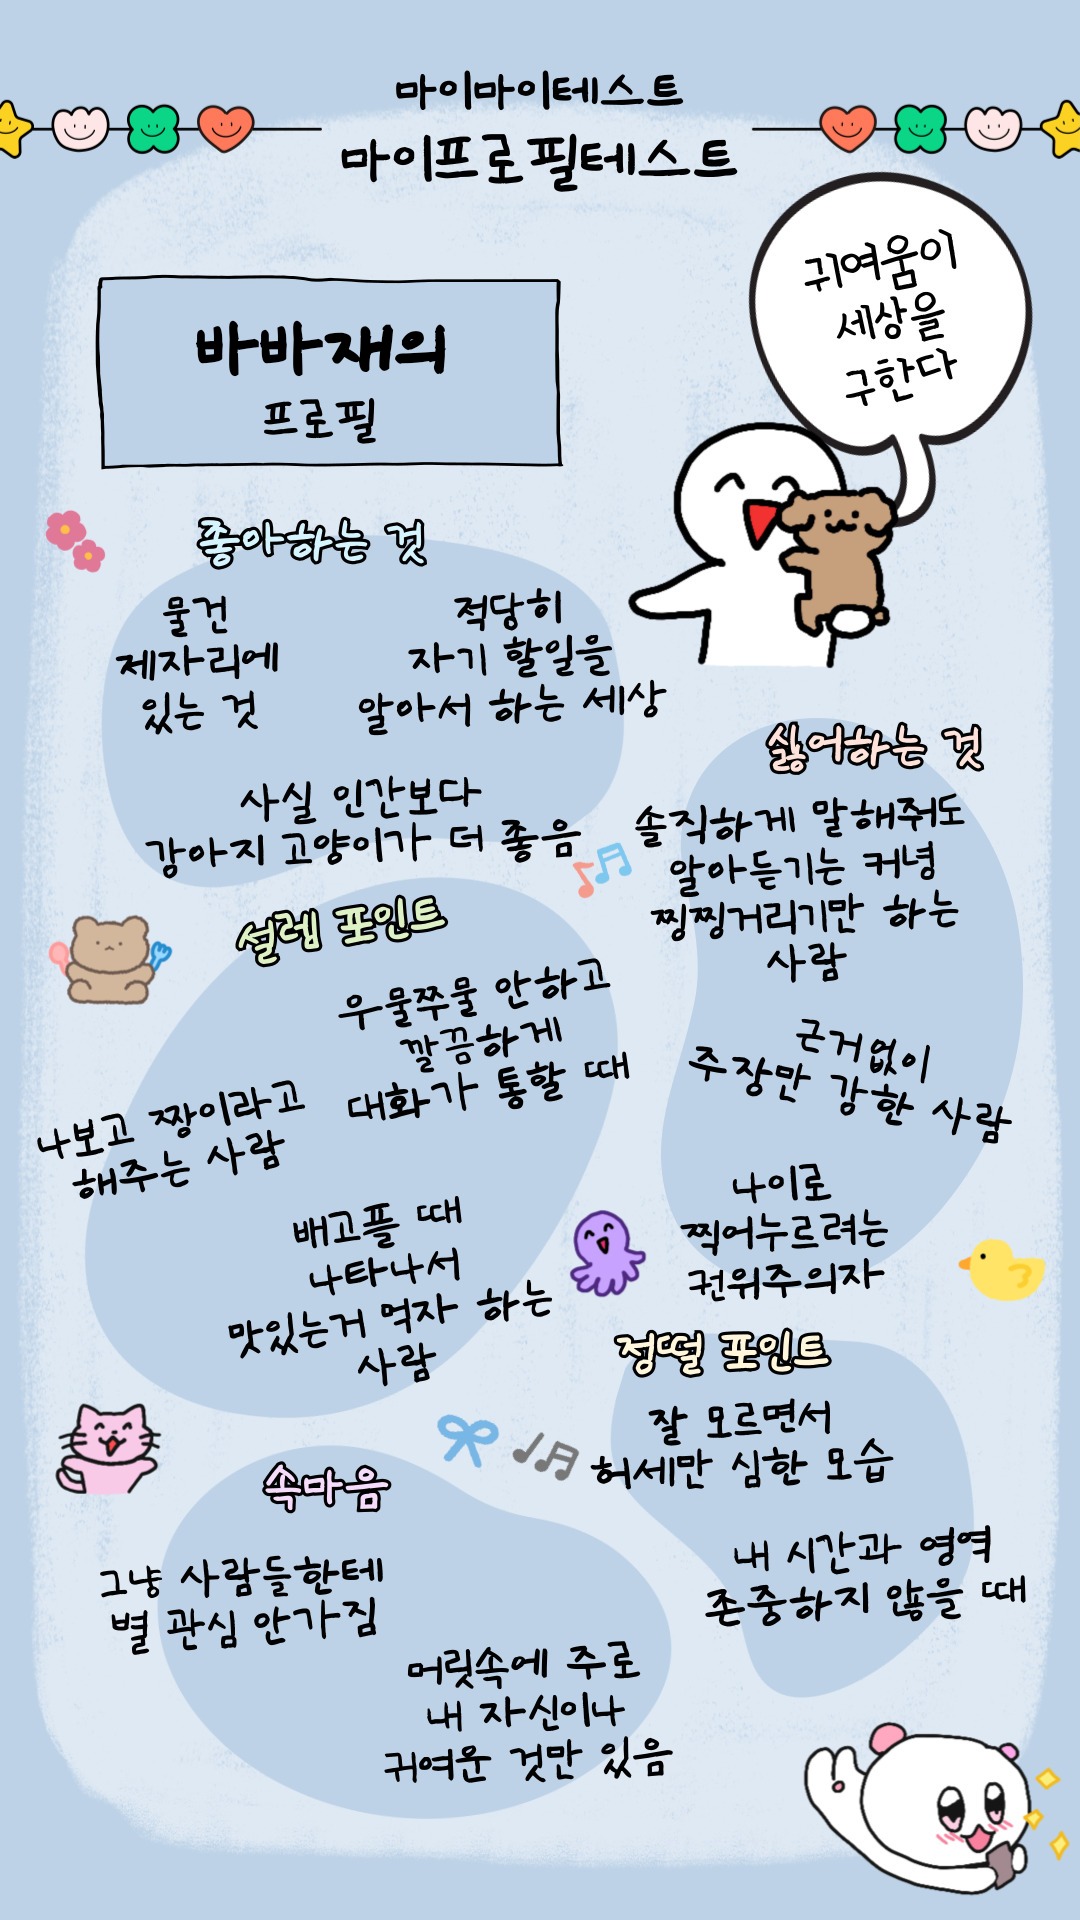 마이마이테스트
마이프로필테스트
귀여움이
세상을
구한다
바바재의
프로필
좋아하는 것
물건
제자리에
있는 것
적당히
자기 할일을
알아서 하는 세상
사실 인간보다
강아지 고양이가 더 좋음
싫어하는 것
솔직하게 말해줘도
알아듣기는 커녕
찡찡거리기만 하는
사람
근거없이
주장만 강한 사람
나이로
찍어누르려는
권위주의자
설렘 포인트
우물쭈물 안하고
깔끔하게
대화가 통할 때
나보고 짱이라고
해주는 사람
배고플 때
나타나서
맛있는거 먹자 하는
사람
정떨 포인트
잘 모르면서
허세만 심한 모습
내 시간과 영역
존중하지 않을 때
속마음
그냥 사람들한테
별 관심 안가짐
머릿속에 주로
내 자신이나
귀여운 것만 있음